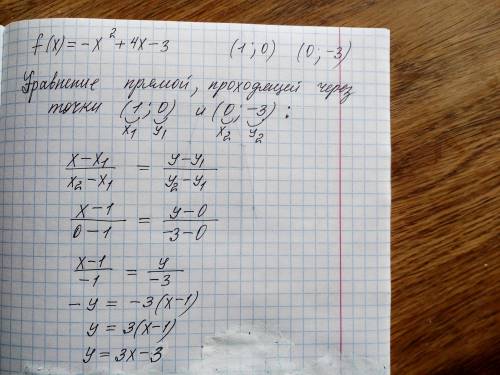 f(x) = -x² + 4x - 3 (1; 0) (0; -3)
Уравнение прямой, проходящей через
точки (1; 0) и (0; -3) :
x₁ y₁ x₂ y₂
(x - x₁)/(x₂ - x₁) = (y - y₁)/(y₂ - y₁)
(x - 1)/(0 - 1) = (y - 0)/(-3 - 0)
(x - 1)/(-1) = y/(-3)
- y = -3(x-1)
y = 3(x-1)
y = 3x - 3